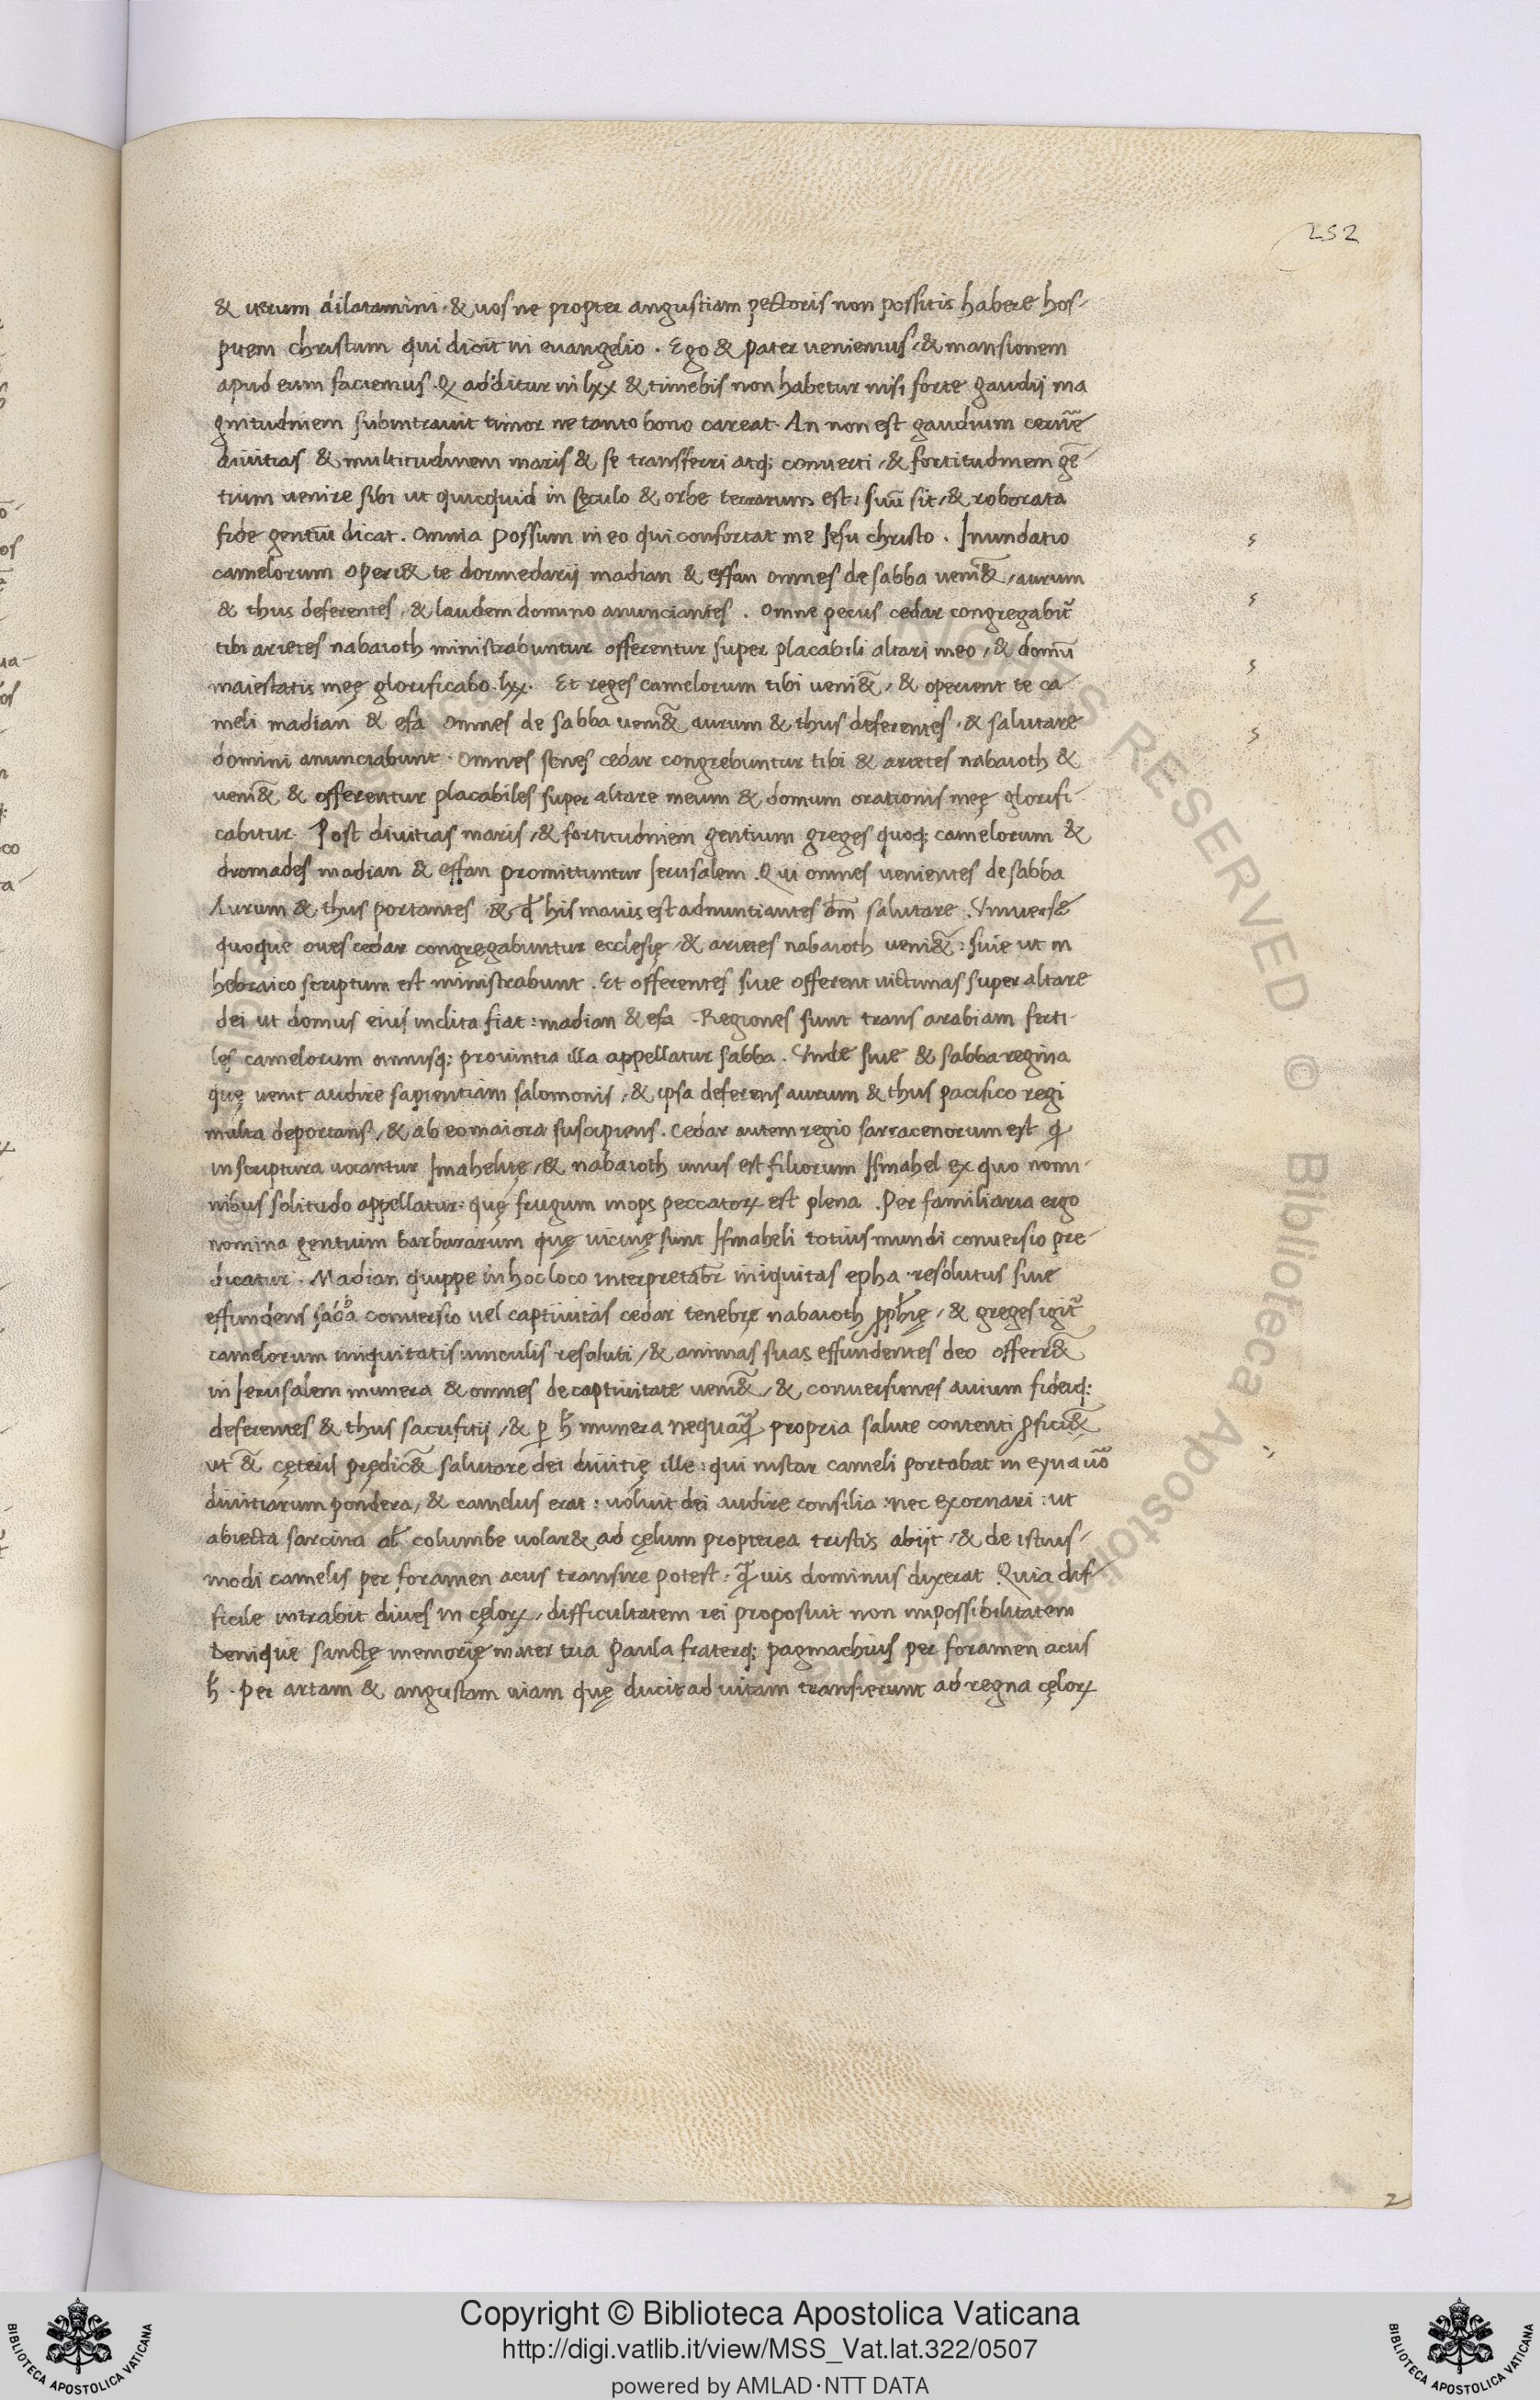 252
& uerum dilatamini · & uos ne propter angustiam pectoris non possitis habere hos-
pitem christum qui dicit in euangelio . Ego & pater ueniemus, & mansionem
apud eum faciemus . Q additur in lxx & timebis non habetur nisi forte gaudij ma
gnitudinem subintrauit timor ne tanto bono careat . An non est gaudium
diuitias & multitudinem maris & se transferri atq; conuerti, & fortitudinem gē-
tium uenire sibi ut quicquid in sęculo & orbe terrarum est, suū sit, & roborata
fide gentiū dicat . Omnia possum in eo qui confortat me Iesu christo . Inundatio
camelorum operi& te dormedarij madian & effan omnes de sabba ueni&̄, aurum
& thus deferentes, & laudem domino anunciantes . Omne pecus cedar congregabit᷑
tibi arietes nabaioth ministrabuntur offerentur super placabili altari meo, & domū
maiestatis meę glorificabo . lxx . Et reges camelorum tibi ueni&̄, & operient te ca
meli madian & efa omnes de sabba ueni&̄ aurum & thus deferentes, & salutare
domini anunciabunt . Omnes oues cedar congrebuntur tibi & arietes nabaioth &
ueni&̄ & offerentur placabiles super altare meum & domum orationis meę glorifi-
cabitur . Post diuitias maris, & fortitudinem gentium greges quoq; camelorum &
dromades madian & effan promittuntur Ierusalem . Qui omnes uenientes de sabba
Aurum & thus portantes & qd̄ his maius est adnuntiantes dn̄i salutare . Vniuersę
quoque oues cedar congregabuntur ecclesię, & arietes nabaioth ueni&̄ : siue ut in
hebraico scriptum est ministrabunt . Et offerentes siue offerent uictimas super altare
dei ut domus eius inclita fiat : madian & efa . Regiones sunt trans arabiam ferti-
les camelorum omnisq; prouintia illa appellatur sabba . Vnde fuit & sabba regina
quę uenit audire sapientiam salomonis, & ipsa deferens aurum & thus pacifico regi
multa deportans, & ab eo maiora suscipiens . Cedar autem regio sarracenorum est q̄
in scriptura uocantur Imahelitę, & nabaioth unus est filiorum Ismahel ex quo nomi-
nibus solitudo appellatur : quę frugum inops peccatoꝝ est plena . Per familiaria ergo
nomina gentium barbararum quę uicinę sunt Ismaheli totius mundi conuersio pre-
dicatur . Madian quippe in hoc loco interpretat᷑ iniquitas epha resolutus siue
effundens saba conuersio uel captiuitas cedar tenebrę nabaioth ꝓphetię, & greges igit᷑
camelorum iniquitatis uinculis resoluti, & animas suas effundentes deo offerr&̄
in Ierusalem munera & omnes de captiuitate ueni&̄, & conuersiones auium fideiq;
deferentes & thus sacrifitij, & ꝑ h̄ munera nequaq̄ propria salute contenti ꝓfici&̄
ut &̄ cęteris prędic& salutare dei diuitię ille : qui instar cameli portabat in
diuitiarum pondera, & camelus erat : uoluit dei audire consilia : nec exornari : ut
abiecta sarcina al̄ columbe uolar& ad cęlum propterea tristis abijt, & de istius-
modi camelis per foramen acus transire potest . q̄uis dominus dixerat . Quia dif-
ficile intrabit diues in cęloꝝ, difficultatem rei proposuit non impossibilitatem
Denique sanctę memorię mater tua Paula fraterq; pagmachius per foramen acus
h̄ . Per artam & angustam uiam quę ducit ad uitam transierunt ad regna cęloꝝ
2
Copyright © Biblioteca Apostolica Vaticana
http://digi.vatlib.it/view/MSS_Vat.lat.322/0507
powered by AMLAD·NTT DATA
BIBLIOTECA APOSTOLICA VATICANA
BIBLIOTECA APOSTOLICA VATICANA